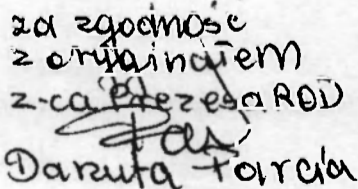 za zgodność
z oryginałem
z-ca Prezesa ROD
Danuta